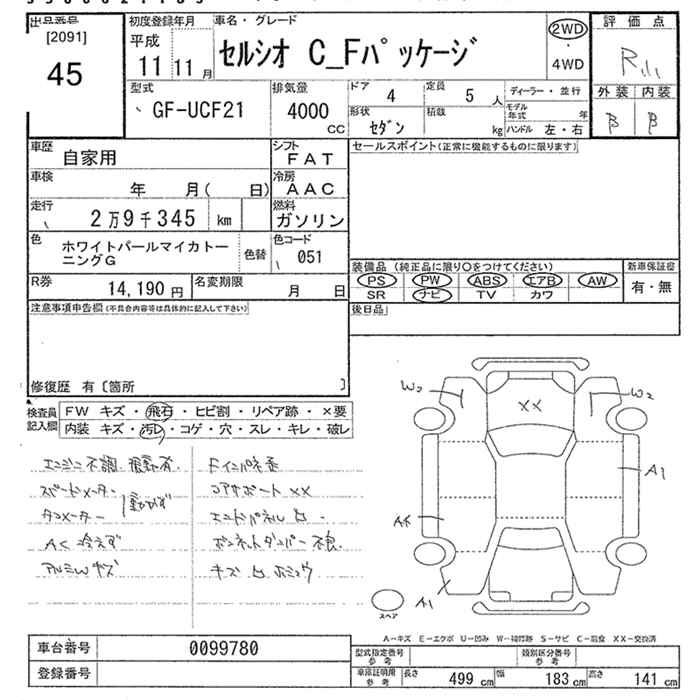 出品番号
[2091]
45
初度登録年月
平成
11 11月
車名・グレード
セルシオ C_Fパッケージ
2WD
・
4WD
評価点
R
外装 内装
β β
型式
GF-UCF21
排気量
4000
CC
ドア
4
定員
5人
ディーラー・並行
形状
セダン
積載
kg
モデル年式 年
ハンドル 左・右
車歴
自家用
シフト
FAT
車検
年 月( 日)
冷房
AAC
走行
2万9千345 km
燃料
ガソリン
色
ホワイトパールマイカトーニングG
色替
色コード
051
R券
14,190円
名変期限
月 日
セールスポイント(正常に機能するものに限ります)
装備品 (純正品に限り○をつけてください)
PS PW ABS エアB AW
SR ナビ TV カワ
新車保証書
有・無
後日品
注意事項申告欄(不具合内容等は具体的に記入して下さい)
修復歴 有〔箇所 〕
検査員記入欄
FW キズ・飛石・ヒビ割・リペア跡・×要
内装 キズ・汚レ・コゲ・穴・スレ・キレ・破レ
エンジン不調
スピードメーター
タコメーター
動かず
AC冷えず
アルミWキズ
Fインパネ歪
コアサポートXX
エンドパネル凹
ボンネットダンパー不良
W2
W2
XX
A1
A1
スペア
A-キズ E-エクボ U-凹み W-補修跡 S-サビ C-腐食 XX-交換済
車台番号
0099780
登録番号
型式指定番号
参考
類別区分番号
参考
車庫証明用
参考
長さ 499 cm
幅 183 cm
高さ 141 cm